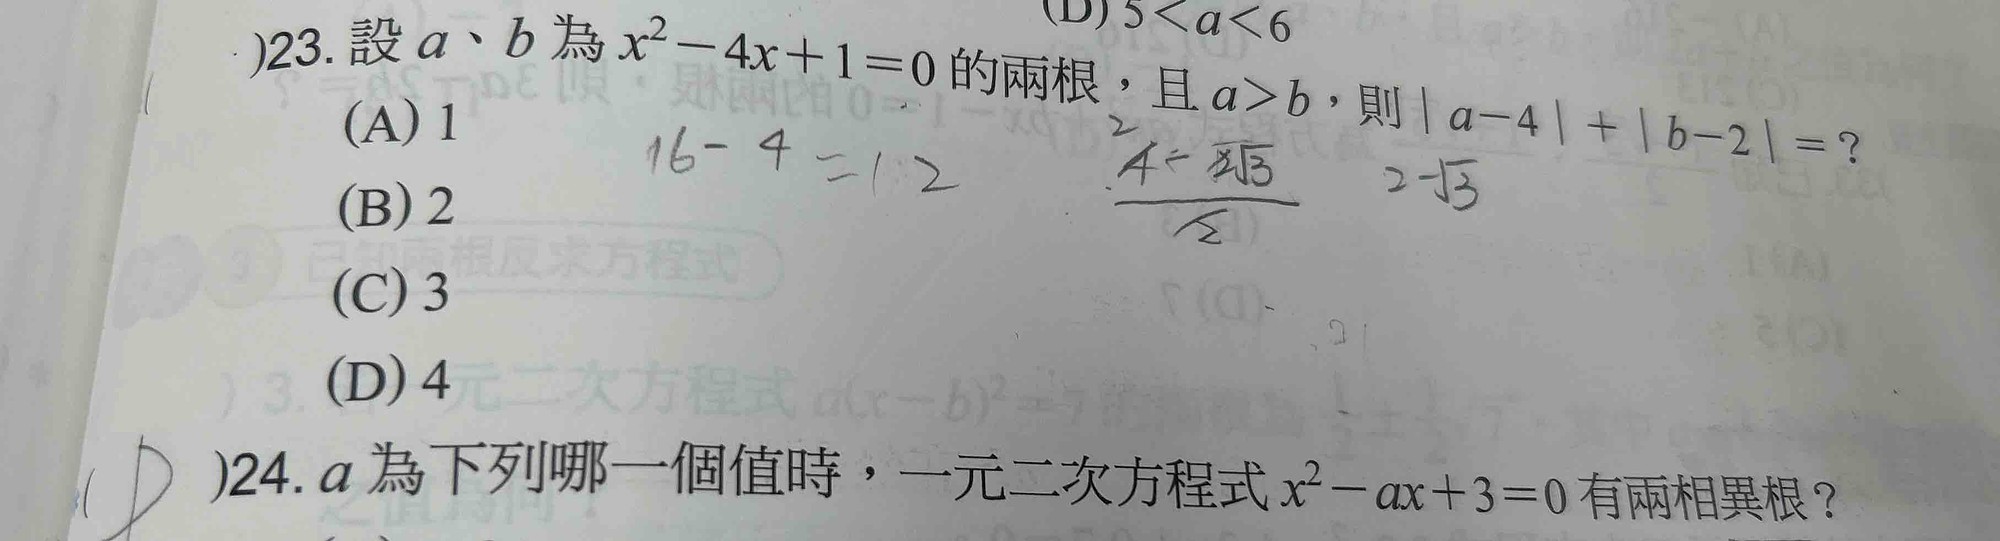 (D) 5<a<6
)23. 設 a、b 為 x²－4x＋1＝0 的兩根，且 a>b，則 | a－4 | ＋ | b－2 | ＝？
(A) 1
16－4＝12
2
4－2√3
2
2－√3
(B) 2
(C) 3
(D) 4
D )24. a 為下列哪一個值時，一元二次方程式 x²－ax＋3＝0 有兩相異根？